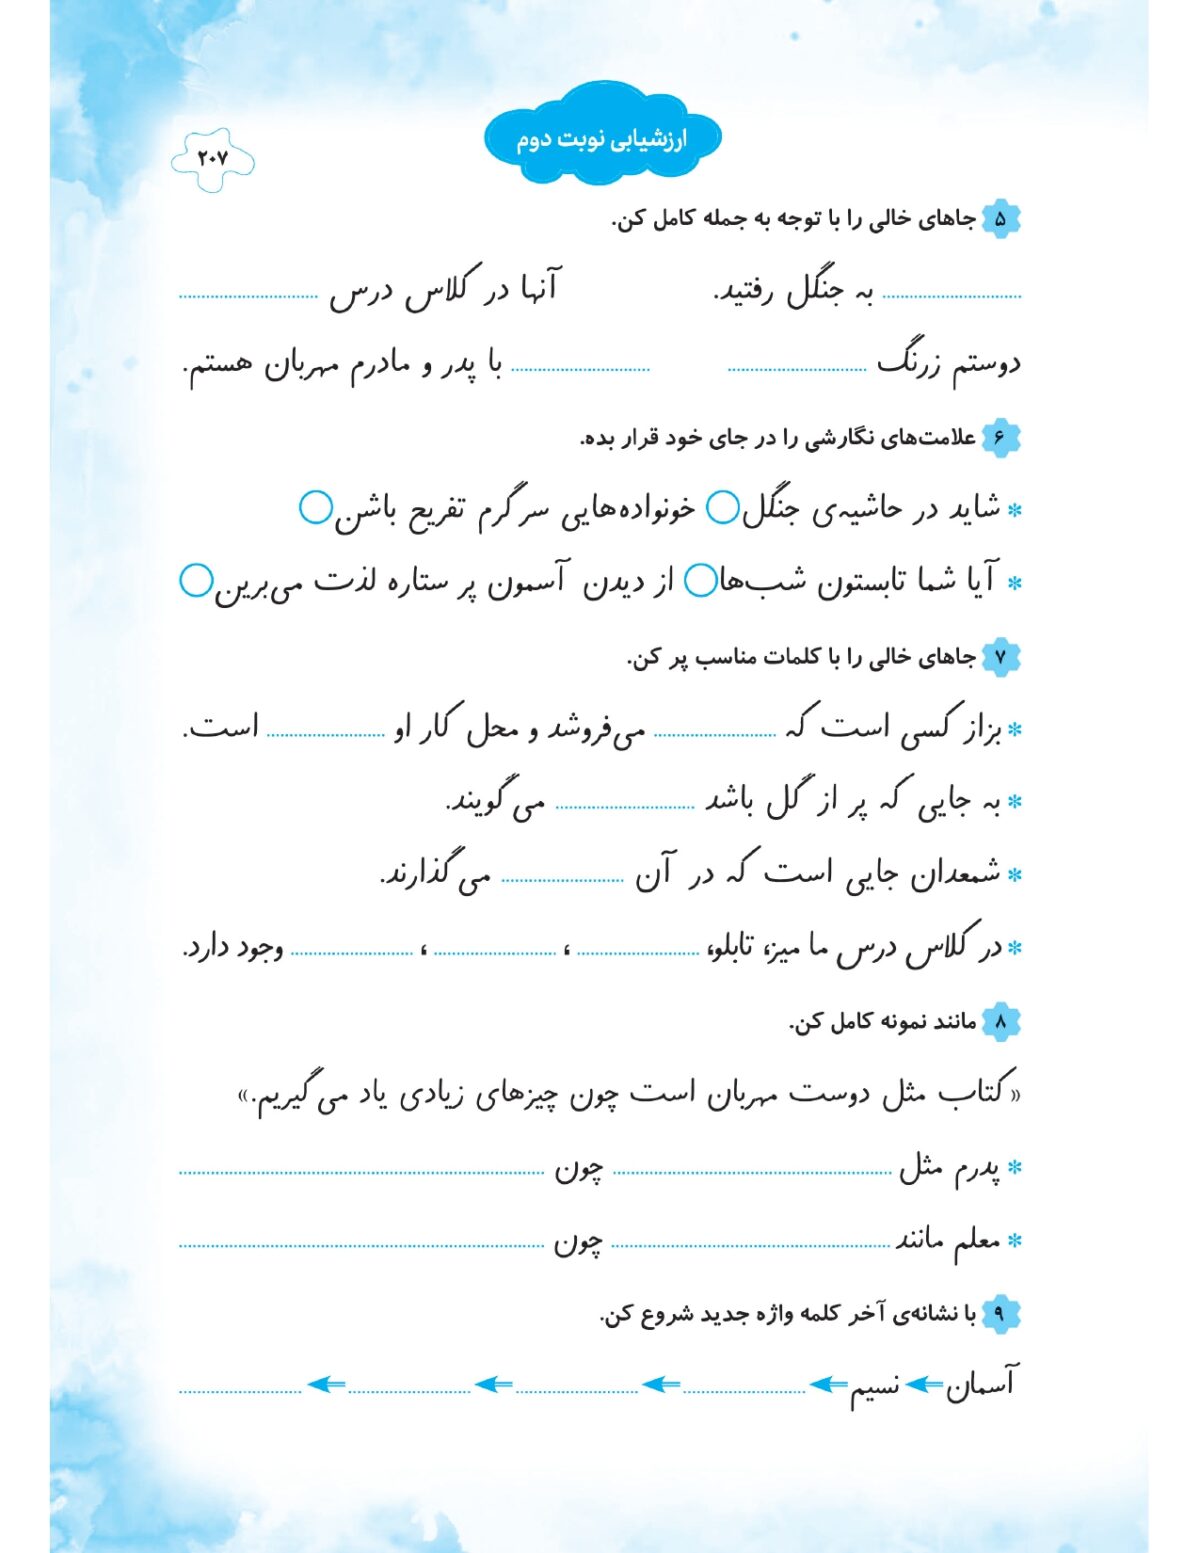 ارزشیابی نوبت دوم
۲۰۷
۵ جاهای خالی را با توجه به جمله کامل کن.
.......... به جنگل رفتید. آنها در کلاس درس ..........
دوستم زرنگ .......... .......... با پدر و مادرم مهربان هستم.
۶ علامت‌های نگارشی را در جای خود قرار بده.
* شاید در حاشیه‌ی جنگل○ خونواده‌هایی سرگرم تفریح باشن○
* آیا شما تابستون شب‌ها○ از دیدن آسمون پر ستاره لذت می‌برین○
۷ جاهای خالی را با کلمات مناسب پر کن.
* بزاز کسی است که .......... می‌فروشد و محل کار او .......... است.
* به جایی که پر از گل باشد .......... می‌گویند.
* شمعدان جایی است که در آن .......... می‌گذارند.
* در کلاس درس ما میز، تابلو، .......... ، .......... ، .......... وجود دارد.
۸ مانند نمونه کامل کن.
«کتاب مثل دوست مهربان است چون چیزهای زیادی یاد می‌گیریم.»
* پدرم مثل .......... چون ..........
* معلم مانند .......... چون ..........
۹ با نشانه‌ی آخر کلمه واژه جدید شروع کن.
آسمان ← نسیم ← .......... ← .......... ← .......... ← ..........